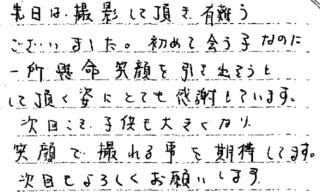 先日は、撮影して頂き有難う
ございました。初めて会う子なのに
一所懸命笑顔を引き出そうと
して頂く姿にとても感謝しています。
次回こそ子供も大きくなり
笑顔で撮れる事を期待してます。
次回もよろしくお願いします